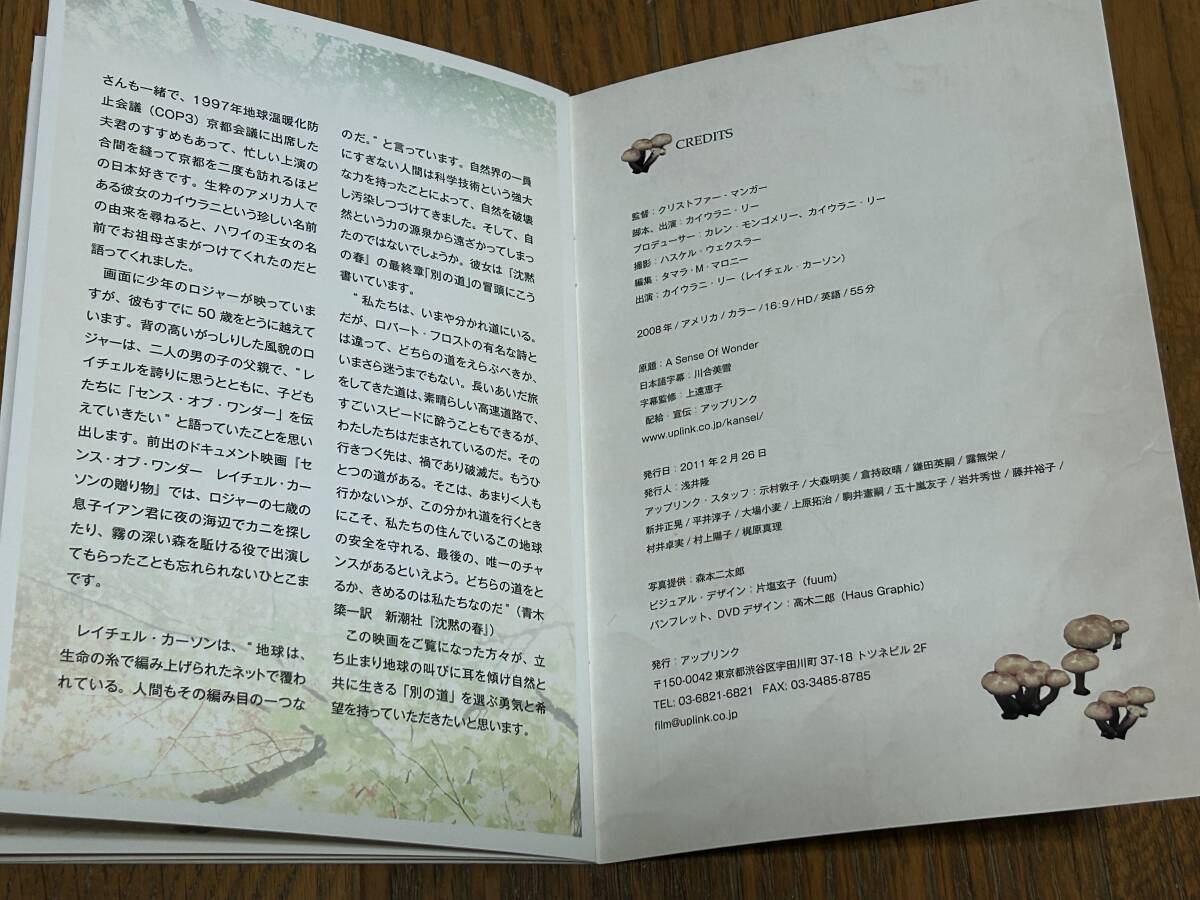 さんも一緒で、1997年地球温暖化防
止会議（COP3）京都会議に出席した
夫君のすすめもあって、忙しい上演の
合間を縫って京都を二度も訪れるほど
の日本好きです。生粋のアメリカ人で
ある彼女のカイウラニという珍しい名前
の由来を尋ねると、ハワイの王女の名
前でお祖母さまがつけてくれたのだと
語ってくれました。
画面に少年のロジャーが映っていま
すが、彼もすでに 50 歳をとうに越えて
います。背の高いがっしりした風貌のロ
ジャーは、二人の男の子の父親で、“レ
イチェルを誇りに思うとともに、子ども
たちに「センス・オブ・ワンダー」を伝
えていきたい” と語っていたことを思い
出します。前出のドキュメント映画『セ
ンス・オブ・ワンダー　レイチェル・カー
ソンの贈り物』では、ロジャーの七歳の
息子イアン君に夜の海辺でカニを探し
たり、霧の深い森を駈ける役で出演し
てもらったことも忘れられないひとこま
です。
レイチェル・カーソンは、“ 地球は、
生命の糸で編み上げられたネットで覆わ
れている。人間もその編み目の一つな
のだ。” と言っています。自然界の一員
にすぎない人間は科学技術という強大
な力を持ったことによって、自然を破壊
し汚染しつづけてきました。そして、自
然という力の源泉から遠ざかってしまっ
たのではないでしょうか。彼女は『沈黙
の春』の最終章「別の道」の冒頭にこう
書いています。
“ 私たちは、いまや分かれ道にいる。
だが、ロバート・フロストの有名な詩と
は違って、どちらの道をえらぶべきか、
いまさら迷うまでもない。長いあいだ旅
をしてきた道は、素晴らしい高速道路で、
すごいスピードに酔うこともできるが、
わたしたちはだまされているのだ。その
行きつく先は、禍であり破滅だ。もうひ
とつの道がある。そこは、あまり＜人も
行かない＞が、この分かれ道を行くとき
にこそ、私たちの住んでいるこの地球
の安全を守れる、最後の、唯一のチャ
ンスがあるといえよう。どちらの道をと
るか、きめるのは私たちなのだ”（青木
簗一訳　新潮社『沈黙の春』）
この映画をご覧になった方々が、立
ち止まり地球の叫びに耳を傾け自然と
共に生きる「別の道」を選ぶ勇気と希
望を持っていただきたいと思います。
CREDITS
監督：クリストファー・マンガー
脚本、出演：カイウラニ・リー
プロデューサー：カレン・モンゴメリー、カイウラニ・リー
撮影：ハスケル・ウェクスラー
編集：タマラ・M・マロニー
出演：カイウラニ・リー（レイチェル・カーソン）
2008年/アメリカ/カラー/16:9/HD/英語/55分
原題：A Sense Of Wonder
日本語字幕：川合美雪
字幕監修：上遠恵子
配給・宣伝：アップリンク
www.uplink.co.jp/kansei/
発行日：2011年2月26日
発行人：浅井隆
アップリンク・スタッフ：示村敦子/大森明美/倉持政晴/鎌田英嗣/露無栄/
新井正晃/平井淳子/大場小麦/上原拓治/駒井憲嗣/五十嵐友子/岩井秀世/藤井裕子/
村井卓実/村上陽子/梶原真理
写真提供：森本二太郎
ビジュアル・デザイン：片塩玄子（fuum）
パンフレット、DVDデザイン：高木二郎（Haus Graphic）
発行：アップリンク
〒150-0042 東京都渋谷区宇田川町 37-18 トツネビル 2F
TEL: 03-6821-6821 FAX: 03-3485-8785
film@uplink.co.jp